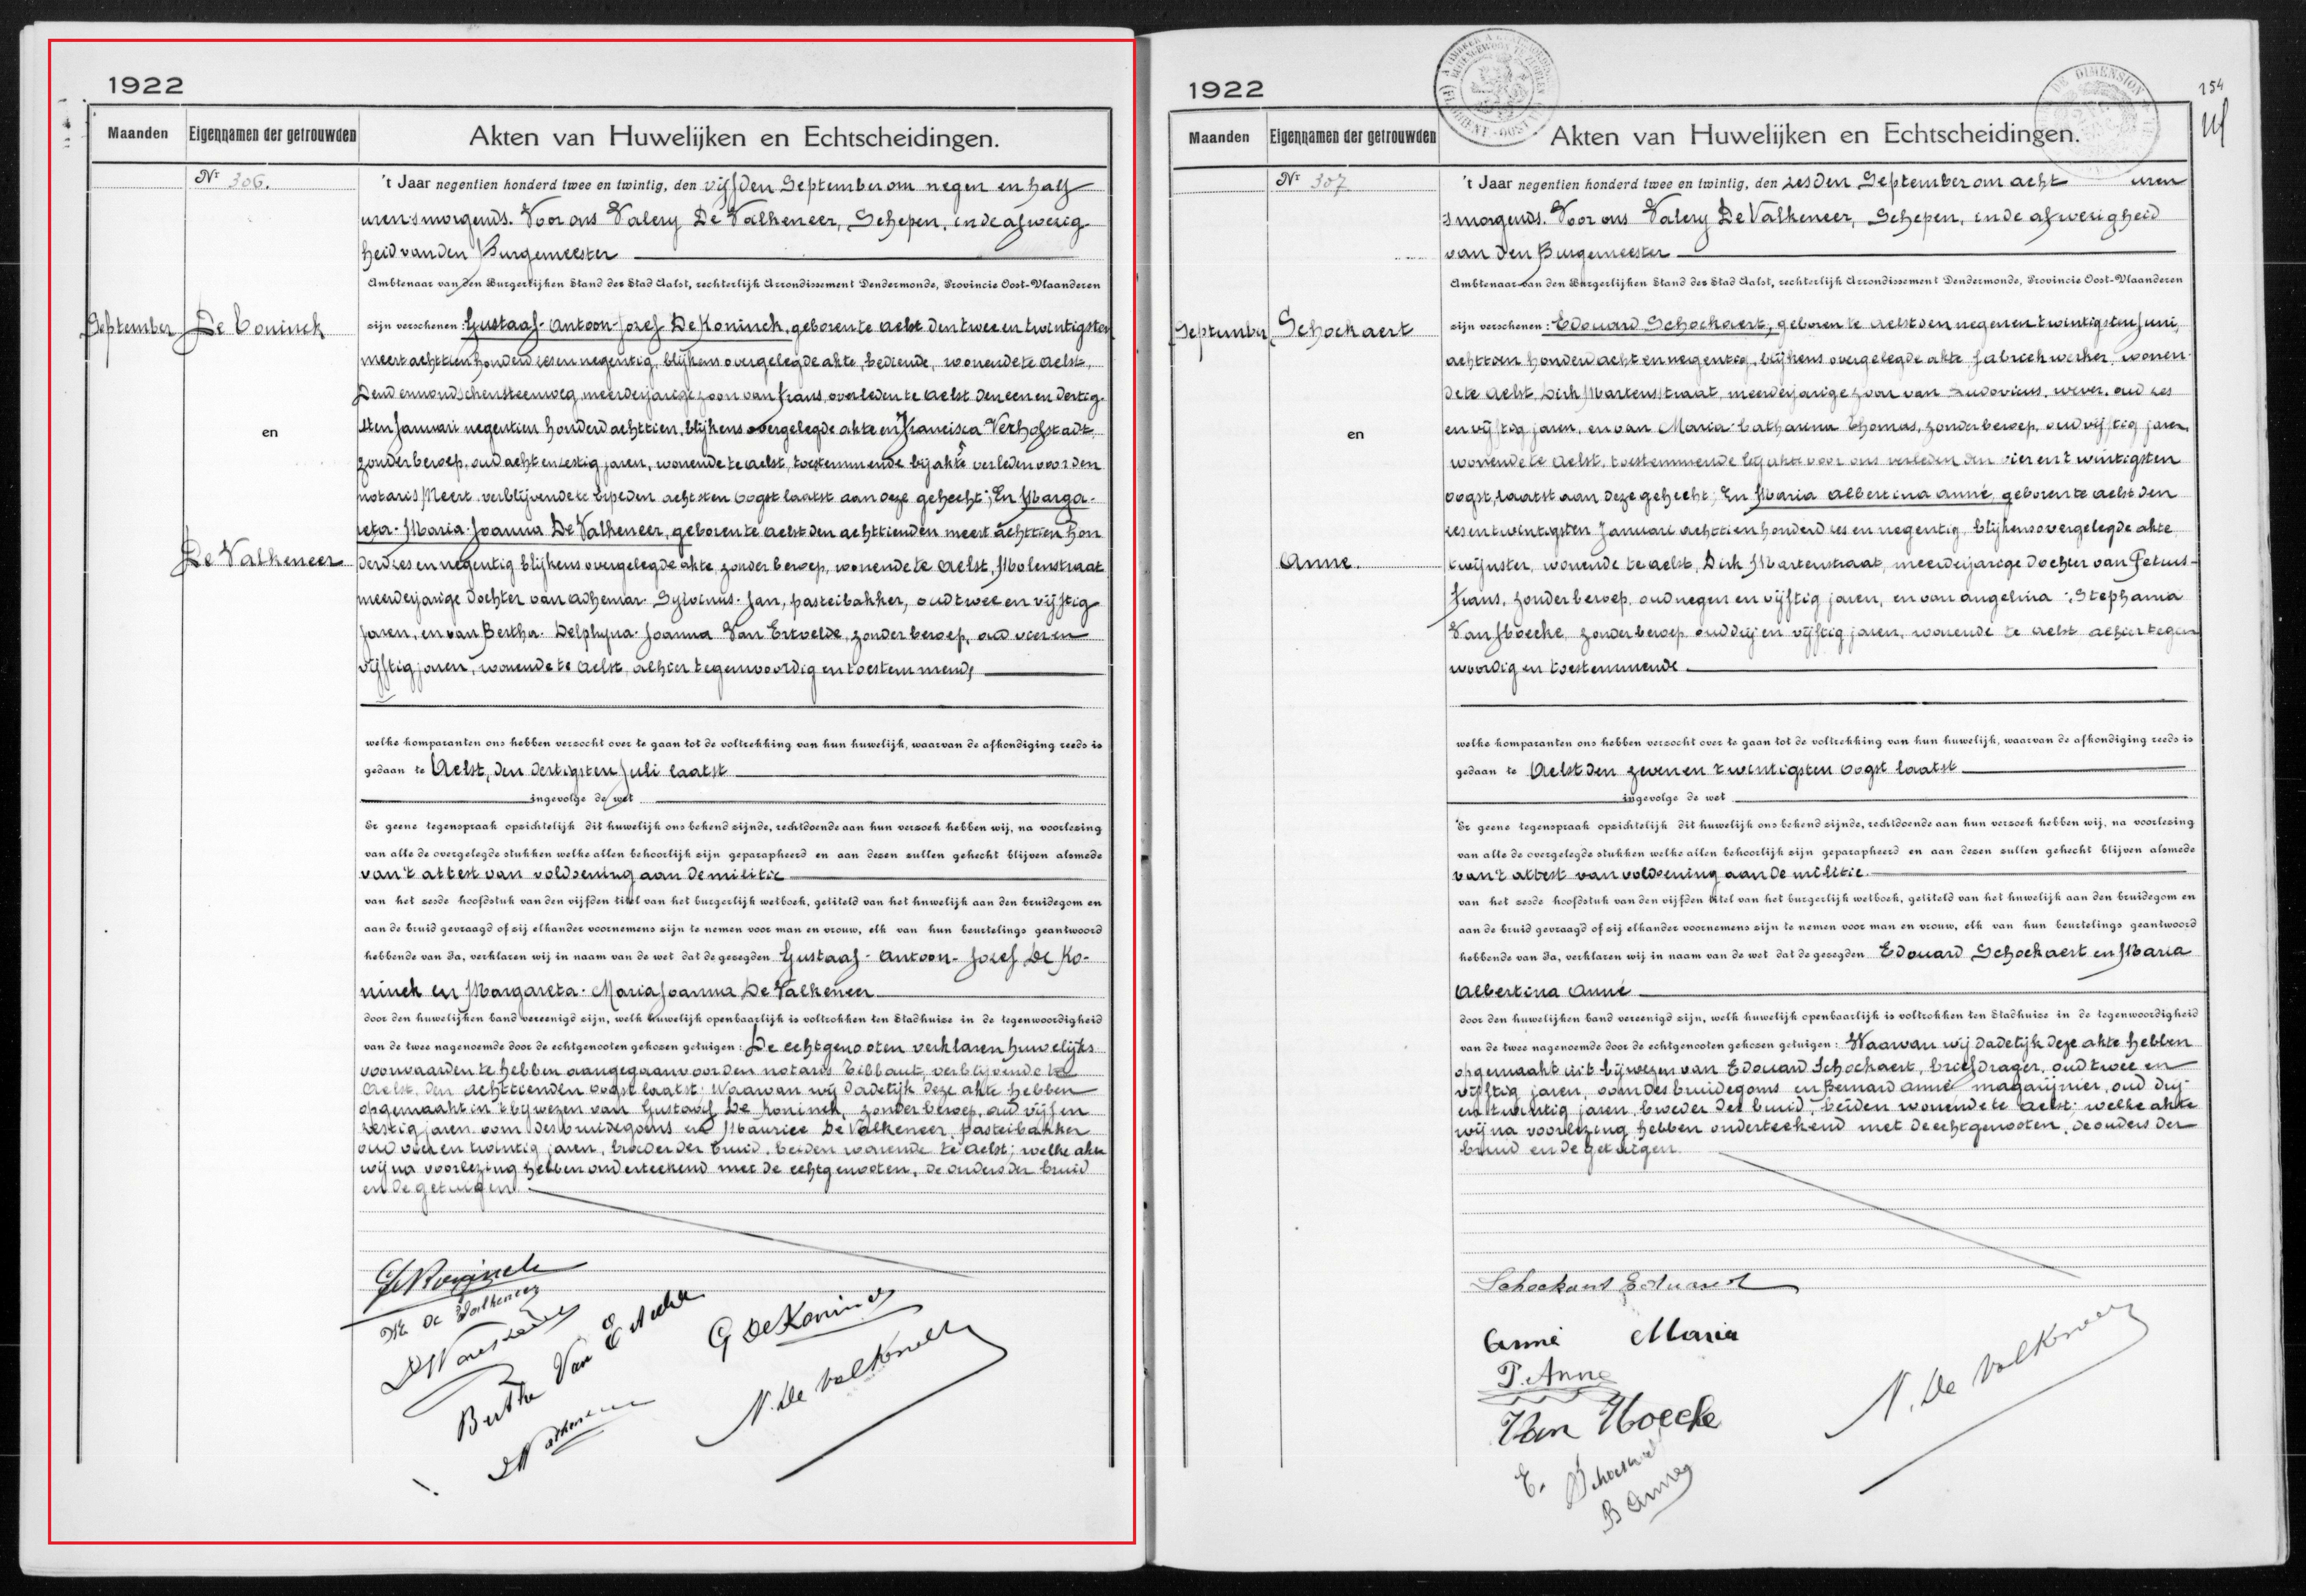 1922
Maanden
Eigennamen der getrouwden
Akten van Huwelijken en Echtscheidingen.
Nr 306.
't Jaar negentien honderd twee en twintig, den vijfden September om negen en half
uren 's morgends. Voor ons Valery De Valkeneer, Schepen, in de afwezig-
heid van den Burgemeester
Ambtenaar van den Burgerlijken Stand der Stad Aalst, rechterlijk Arrondissement Dendermonde, Provincie Oost-Vlaanderen
September
De Coninck
en
De Valkeneer
zijn verschenen: Gustaaf-Antoon-Jozef De Koninck, geboren te Aelst den twee en twintigsten
meert achttien honderd zes en negentig, blijkens overgelegde akte, bediende, wonende te Aelst,
Dendermondschensteenweg, meerderjarige zoon van Frans, overleden te Aelst den een en dertig-
sten Januari negentien honderd achttien, blijkens overgelegde akte en Francisca Verhofstadt
zonder beroep, oud acht en zestig jaren, wonende te Aelst, toestemmende bij akte verleden voor den
notaris Meert verblijvende te Erpe den achtsten Oogst laatst aan deze gehecht; En Marga-
reta-Maria-Joanna De Valkeneer, geboren te Aelst den achttienden meert achttien hon
derd zes en negentig blijkens overgelegde akte, zonder beroep, wonende te Aelst, Molenstraat
meerderjarige dochter van Adhemar-Sylvinus-Jan, pasteibakker, oud twee en vijftig
jaren, en van Bertha-Delphyna-Joanna Van Ertvelde, zonder beroep, oud vier en
vijftig jaren, wonende te Aelst, alhier tegenwoordig en toestemmend,
welke komparanten ons hebben verzocht over te gaan tot de voltrekking van hun huwelijk, waarvan de afkondiging reeds is
gedaan te Aelst, den dertigsten Juli laatst
ingevolge de wet
Er geene tegenspraak opzichtelijk dit huwelijk ons bekend zijnde, rechtdoende aan hun verzoek hebben wij, na voorlezing
van alle de overgelegde stukken welke allen behoorlijk zijn geparapheerd en aan dezen zullen gehecht blijven alsmede
van 't attest van voldoening aan de militie
van het zesde hoofdstuk van den vijfden titel van het burgerlijk wetboek, getiteld van het huwelijk aan den bruidegom en
aan de bruid gevraagd of zij elkander voornemens zijn te nemen voor man en vrouw, elk van hun beurtelings geantwoord
hebbende van Ja, verklaren wij in naam van de wet dat de gezegden Gustaaf-Antoon-Jozef De Ko-
ninck en Margareta-Maria Joanna De Valkeneer
door den huwelijken band vereenigd zijn, welk huwelijk openbaarlijk is voltrokken ten Stadhuize in de tegenwoordigheid
van de twee nagenoemde door de echtgenooten gekozen getuigen: De echtgenooten verklaren huwelijks
voorwaarden te hebben aangegaan voor den notaris Tibbaut, verblijvende te
Aelst, den achttienden oogst laatst; Waarvan wij dadelijk deze akte hebben
opgemaakt in 't bijwezen van Gustaaf De Koninck, zonder beroep, oud vijf en
zestig jaren oom des bruidegoms en Maurice De Valkeneer, pasteibakker
oud vier en twintig jaren, broeder der bruid, beiden wonende te Aelst; welke akte
wij na voorlezing hebben onderteekend met de echtgenooten, de ouders der bruid
en de getuigen.
De Koninck
M De Valkeneer
Berthe Van Ertvelde
G De Koninck
V. De Valkeneer
1922
154
Maanden
Eigennamen der getrouwden
Akten van Huwelijken en Echtscheidingen.
Nr 307
't Jaar negentien honderd twee en twintig, den zesden September om acht uren
s morgends. Voor ons Valery De Valkeneer, Schepen, in de afwezigheid
van den Burgemeester
Ambtenaar van den Burgerlijken Stand der Stad Aalst, rechterlijk Arrondissement Dendermonde, Provincie Oost-Vlaanderen
September
Schockaert
en
Anné.
zijn verschenen: Edouard Schockaert, geboren te Aelst den negen en twintigsten Juni,
achttien honderd acht en negentig, blijkens overgelegde akte fabriekwerker, wonen-
de te Aelst, Dirk Martensstraat, meerderjarige zoon van Ludovicus, wever, oud zes
en vijftig jaren, en van Maria-Catharina Thomas, zonder beroep, oud vijftig jaren,
wonende te Aelst, toestemmende bij akte voor ons verleden den vier en twintigsten
oogst, laatst aan deze gehecht; En Maria Albertina Anné, geboren te Aelst den
zes en twintigsten Januari achttien honderd zes en negentig, blijkens overgelegde akte
twijnster, wonende te Aelst, Dirk Martenstraat, meerderjarige dochter van Petrus-
Frans, zonder beroep, oud negen en vijftig jaren, en van Angelina-Stephania
Van Hoecke, zonder beroep, oud drij en vijftig jaren, wonende te Aelst alhier tegen
woordig en toestemmende
welke komparanten ons hebben verzocht over te gaan tot de voltrekking van hun huwelijk, waarvan de afkondiging reeds is
gedaan te Aelst den zeven en twintigsten oogst laatst
ingevolge de wet
Er geene tegenspraak opzichtelijk dit huwelijk ons bekend zijnde, rechtdoende aan hun verzoek hebben wij, na voorlezing
van alle de overgelegde stukken welke allen behoorlijk zijn geparapheerd en aan dezen zullen gehecht blijven alsmede
van 't attest van voldoening aan de militie.
van het zesde hoofdstuk van den vijfden titel van het burgerlijk wetboek, getiteld van het huwelijk aan den bruidegom en
aan de bruid gevraagd of zij elkander voornemens zijn te nemen voor man en vrouw, elk van hun beurtelings geantwoord
hebbende van Ja, verklaren wij in naam van de wet dat de gezegden Edouard Schockaert en Maria
Albertina Anné
door den huwelijken band vereenigd zijn, welk huwelijk openbaarlijk is voltrokken ten Stadhuize in de tegenwoordigheid
van de twee nagenoemde door de echtgenooten gekozen getuigen: Waarvan wij dadelijk deze akte hebben
opgemaakt in 't bijwezen van Edouard Schockaert, briefdrager, oud twee en
vijftig jaren, oom des bruidegoms en Bernard Anné magazijnier, oud drij-
en twintig jaren, broeder der bruid, beiden wonende te Aelst; welke akte
wij na voorlezing hebben onderteekend met de echtgenooten, de ouders der
bruid en de getuigen.
Schockaert Eduard
Anné Maria
P. Anné
Van Hoecke
E. Schockaert
B Anné
V. De Valkeneer